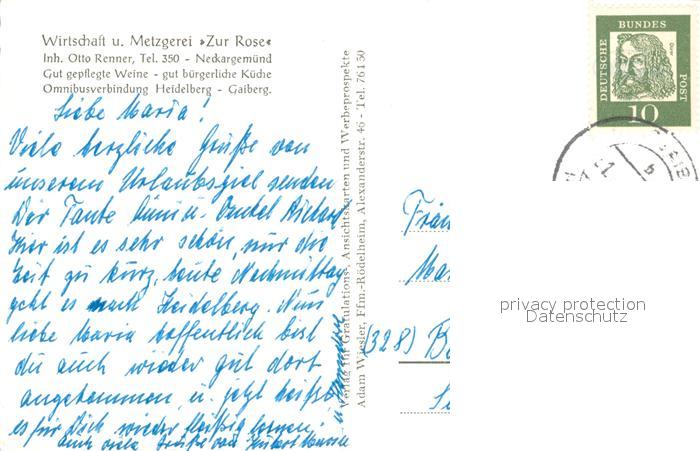 Wirtschaft u. Metzgerei »Zur Rose«
Inh. Otto Renner, Tel. 350 - Neckargemünd
Gut gepflegte Weine - gut bürgerliche Küche
Omnibusverbindung Heidelberg - Gaiberg.
Liebe Maria!
Viele herzliche Grüße von
unserem Urlaubsziel senden
Dir Tante u. Onkel Richard
Hier ist es sehr schön, nur die
Zeit zu kurz, heute Nachmittag
geht es nach Heidelberg. Nun
liebe Maria hoffentlich bist
du auch wieder gut dort
angekommen, u. jetzt heißt
es für Dich wieder fleißig lernen
Auch viele Grüße von
Verlag für Gratulations-, Ansichtskarten und Werbeprospekte
Adam Wiesler, Ffm.-Rödelheim, Alexanderstr. 46 - Tel. 76150
DEUTSCHE BUNDES POST
Dürer
10
b
Fräu
Mar
(328) B
privacy protection
Datenschutz